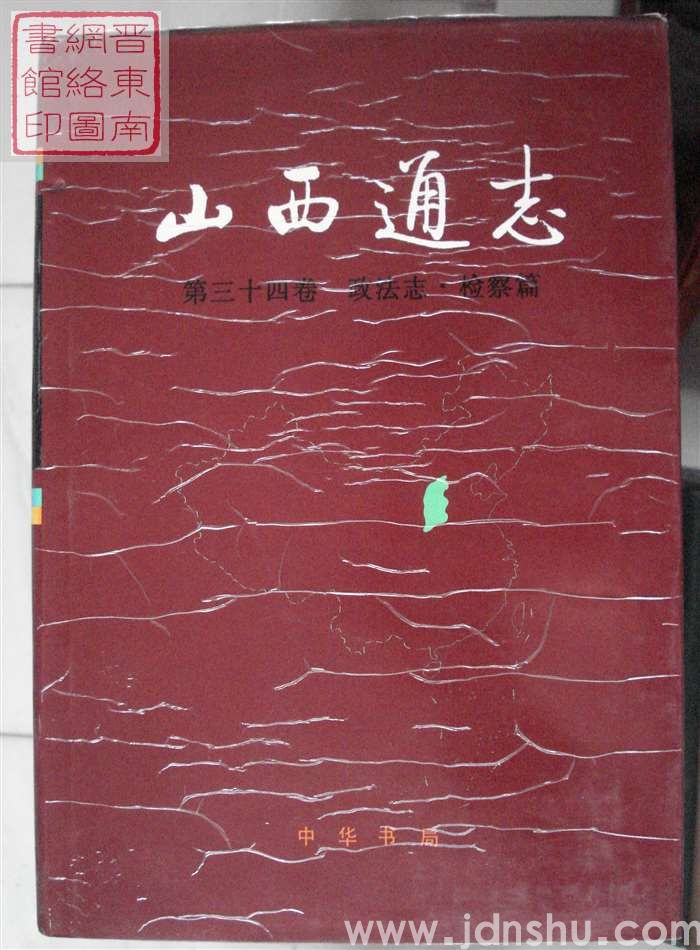 晋東南
網絡圖
書館印
山西通志
第三十四卷 政法志·检察篇
中华书局
www.jdnshu.com